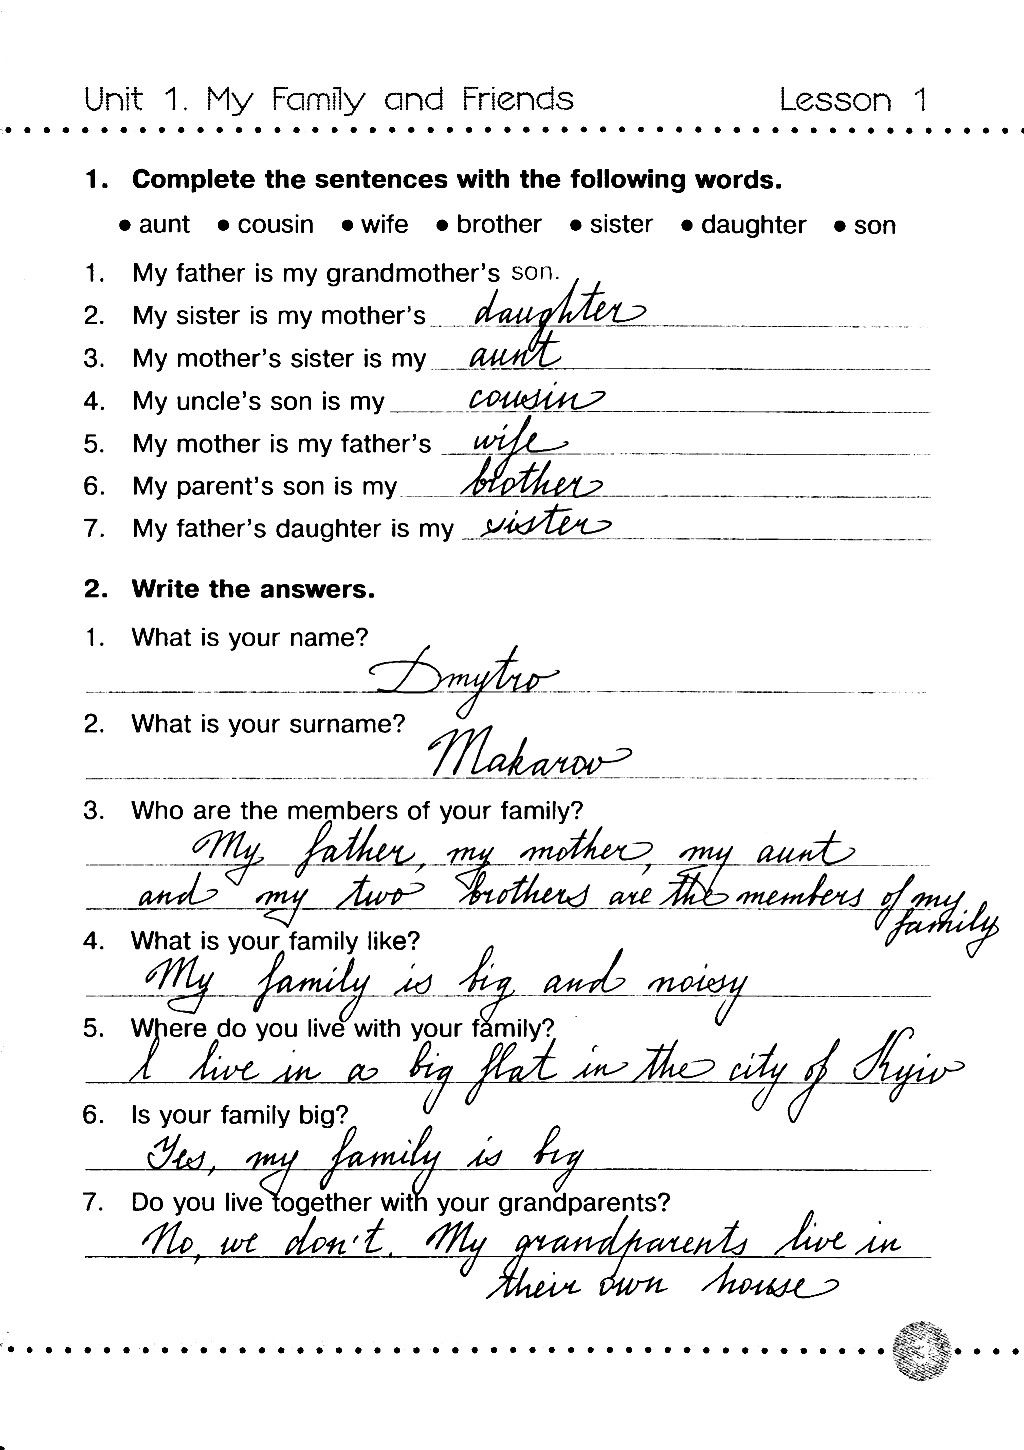 Unit 1. My Family and Friends Lesson 1
1. Complete the sentences with the following words.
• aunt • cousin • wife • brother • sister • daughter • son
1. My father is my grandmother's son.
2. My sister is my mother's daughter
3. My mother's sister is my aunt
4. My uncle's son is my cousin
5. My mother is my father's wife
6. My parent's son is my brother
7. My father's daughter is my sister
2. Write the answers.
1. What is your name?
Dmytro
2. What is your surname?
Makarov
3. Who are the members of your family?
My father, my mother, my aunt
and my two brothers are the members of my
family
4. What is your family like?
My family is big and noisy
5. Where do you live with your family?
I live in a big flat in the city of Kyiv
6. Is your family big?
Yes, my family is big
7. Do you live together with your grandparents?
No, we don't. My grandparents live in
their own house
3